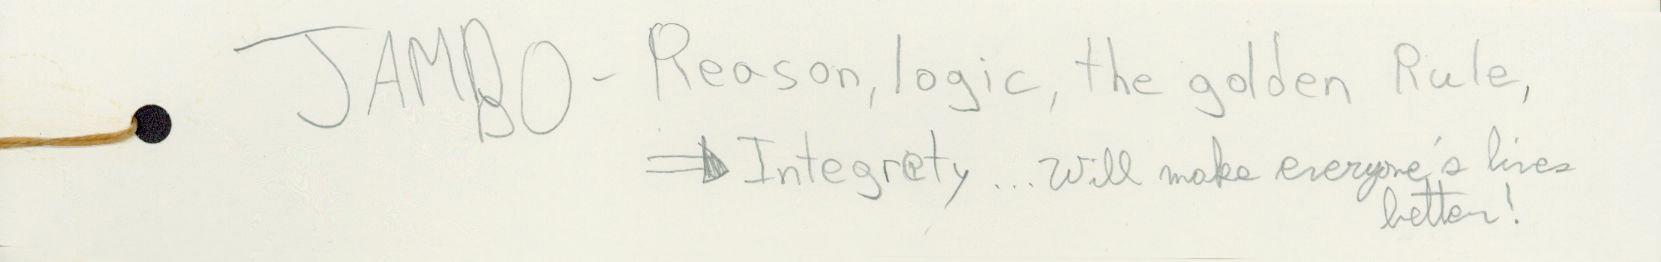 JAMBO - Reason, logic, the golden Rule,
⇒ Integrety ... will make everyone's lives
better!